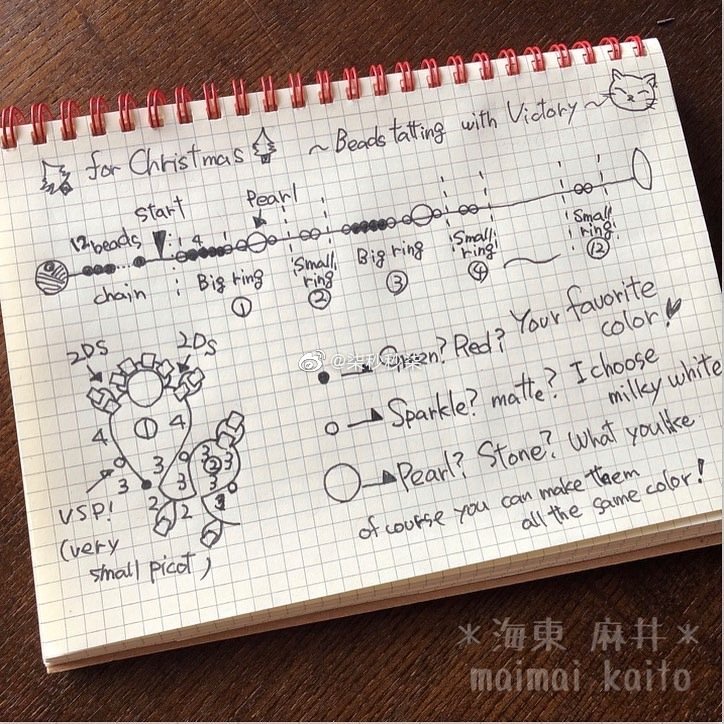 for Christmas ~ Beads tatting with Victory ~
start
Pearl
12 beads
4
chain
Big ring
①
Small ring
②
Big ring
③
Small ring
④
Small ring
⑫
2DS
2DS
4
①
4
3
3
VSP!
(very
small picot)
2
2
3
3
②
3
3
Green? Red? Your favorite
color!
@柒秒秒柒
Sparkle? matte? I choose
milky white
Pearl? Stone? What you like
of course you can make them
all the same color!
*海東 麻井*
maimai kaito